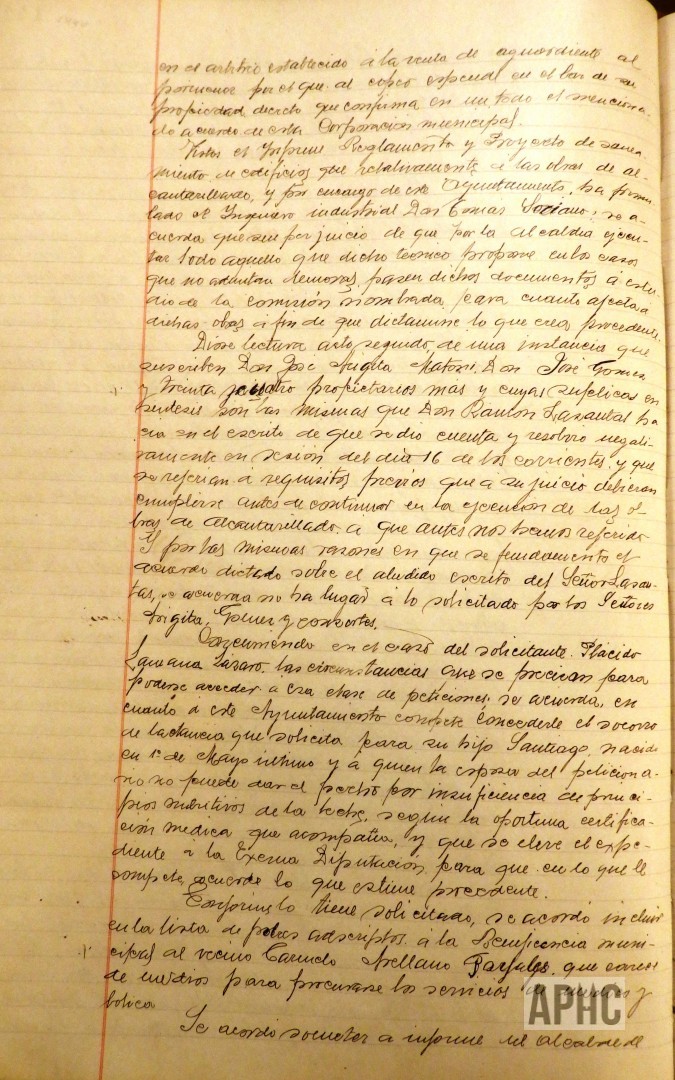 en el arbitrio establecido á la venta de aguardiente al
pormenor por el que al copeo expende en el bar de su
propiedad decreto que confirma en un todo el menciona-
do acuerdo de esta Corporación municipal.
Vistos el Informe Reglamento y Proyecto de sanea
miento de edificios que relativamente á las obras de al-
cantarillado, y por encargo de este Ayuntamiento, ha formu-
lado el Ingeniero industrial Don Tomas Sociano, se a-
cuerda que sin perjuicio de que por la Alcaldia ejecu-
tar todo aquello que dicho tecnico propone en los casos
que no admitan demoras, pasen dichos documentos á estu
dio de la comisión nombrada para cuanto afecta a
dichas obras á fin de que dictamine lo que crea procedente.
Diose lectura acto seguido de una instancia que
suscriben Don José Don José Gomez
y treinta y cuatro propietarios más y cuyas suplicas en
sintesis son las mismas que Don Ramón Lasautas ha
cia en el escrito de que se dio cuenta y resolvio negati
vamente en sesión del dia 16 de los corrientes y que
se referian á requisitos previos que a su juicio debieran
cumplirse antes de continuar en la ejecución de las o-
bras de alcantarillado a que antes nos hemos referido
Y por las mismas razones en que se fundamento el
acuerdo dictado sobre el aludido escrito del Señor Lasau-
tas, se acuerda no ha lugar á lo solicitado por los Señores
y consortes.
Concurriendo en el caso del solicitante Plácido
Lázaro las circunstancias que se precisan para
poderse acceder á esa clase de peticiones se acuerda, en
cuanto á este Ayuntamiento compete concederle el socorro
de lactancia que solicita para su hijo Santiago, nacido
en 1º de Mayo último y á quien la esposa del peticiona-
rio no puede dar el pecho por insuficiencia de princi-
pios nutritivos de la leche, segun la oportuna certifica-
ción médica que acompaña, y que se eleve el expe-
diente á la Excma Diputación para que en lo que le
compete, acuerde lo que estime procedente.
Conforme lo tiene solicitado, se acordó incluir
en la lista de pobres adscriptos á la Beneficencia muni-
cipal al vecino Carmelo Arellano que carece
de medios para procurarse los servicios de medico y
botica
Se acordó someter a informe del Alcalde de
APHC